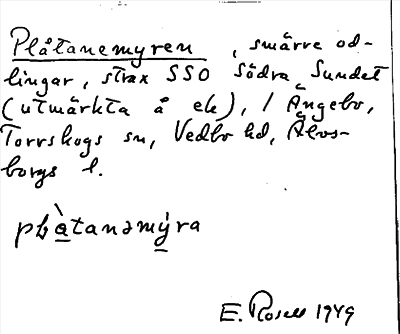 Plåtanemyren, smärre od-
lingar, strax SSO Södra Sundet
(utmärkta å ek), i Ängebo,
Torrskogs sn, Vedbo hd, Älvs-
borgs l.
plàtanəmýra
E. Rosell 1949